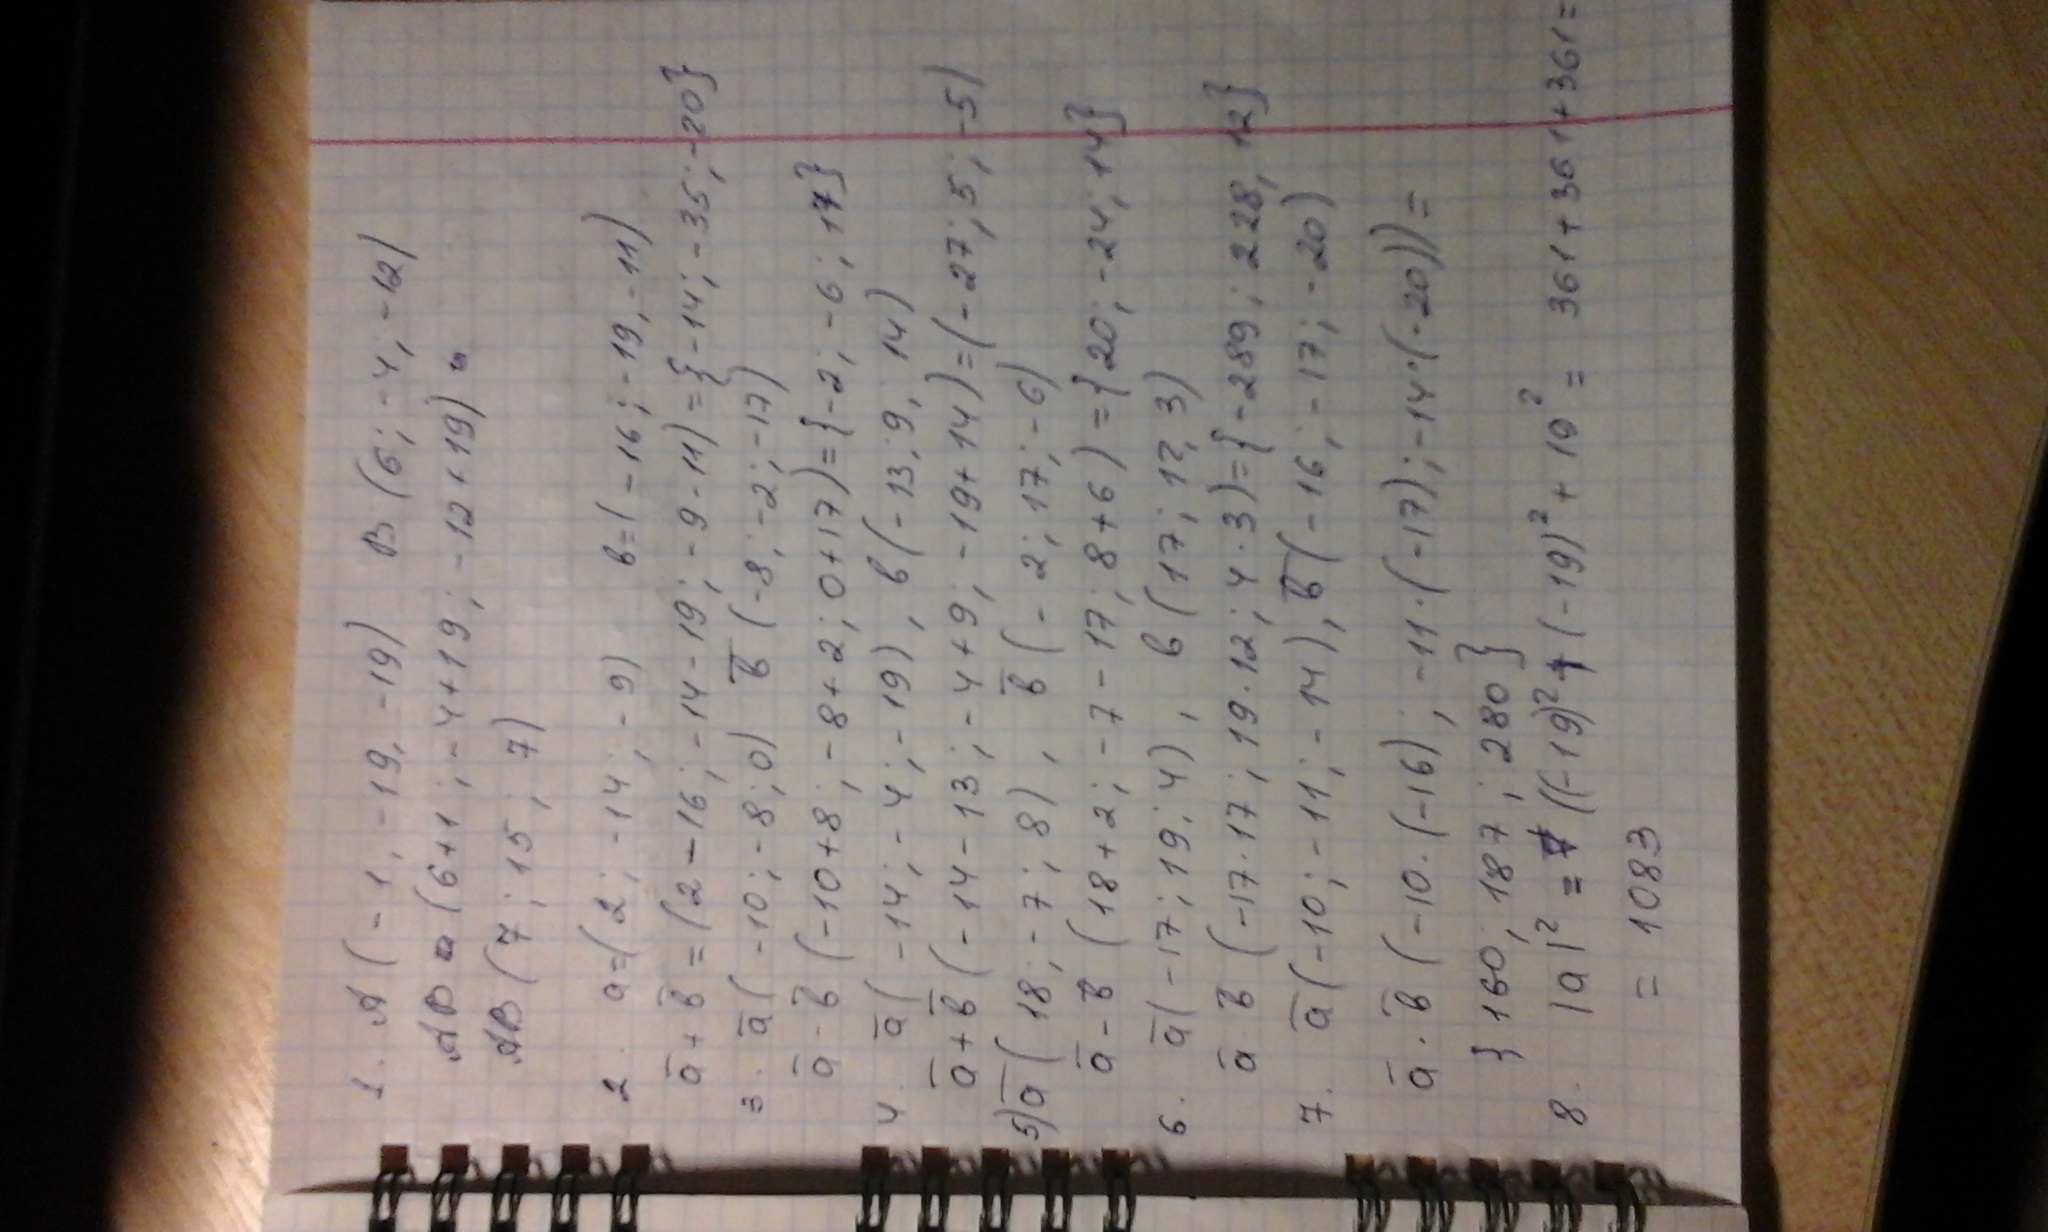 1. A (-1, -19, -19) B (6; -4; -12)
AB = (6+1; -4+19; -12+19) =
AB (7; 15; 7)
2. a=(2; -14; -9) b=(-16; -19, -11)
a̅ + b̅ = (2-16; -14-19; -9-11) = {-14; -35; -20}
3. a̅ (-10; -8; 0) b̅ (-8, -2; -17)
a̅ · b̅ (-10+8; -8+2; 0+17) = {-2; -6; 17}
4. a̅ (-14; -4; -19), b (-13; 9; 14)
a̅ + b̅ (-14-13; -4+9; -19+14) = (-27; 5; -5)
5) a̅ (18; -7; 8), b̅ (-2; 17; -6)
a̅ - b̅ (18+2; -7-17; 8+6) = {20; -24; 14}
6. a̅ (-17; 19; 4), b (17; 12, 3)
a̅ · b̅ (-17·17; 19·12; 4·3) = {-289; 228, 12}
7. a̅ (-10; -11; -14), b̅ (-16; -17; -20)
a̅ · b̅ (-10·(-16); -11·(-17); -14·(-20)) =
} 160; 187; 280}
8. |a|² = ((-19)² + (-19)² + 19² = 361+361+361=
= 1083